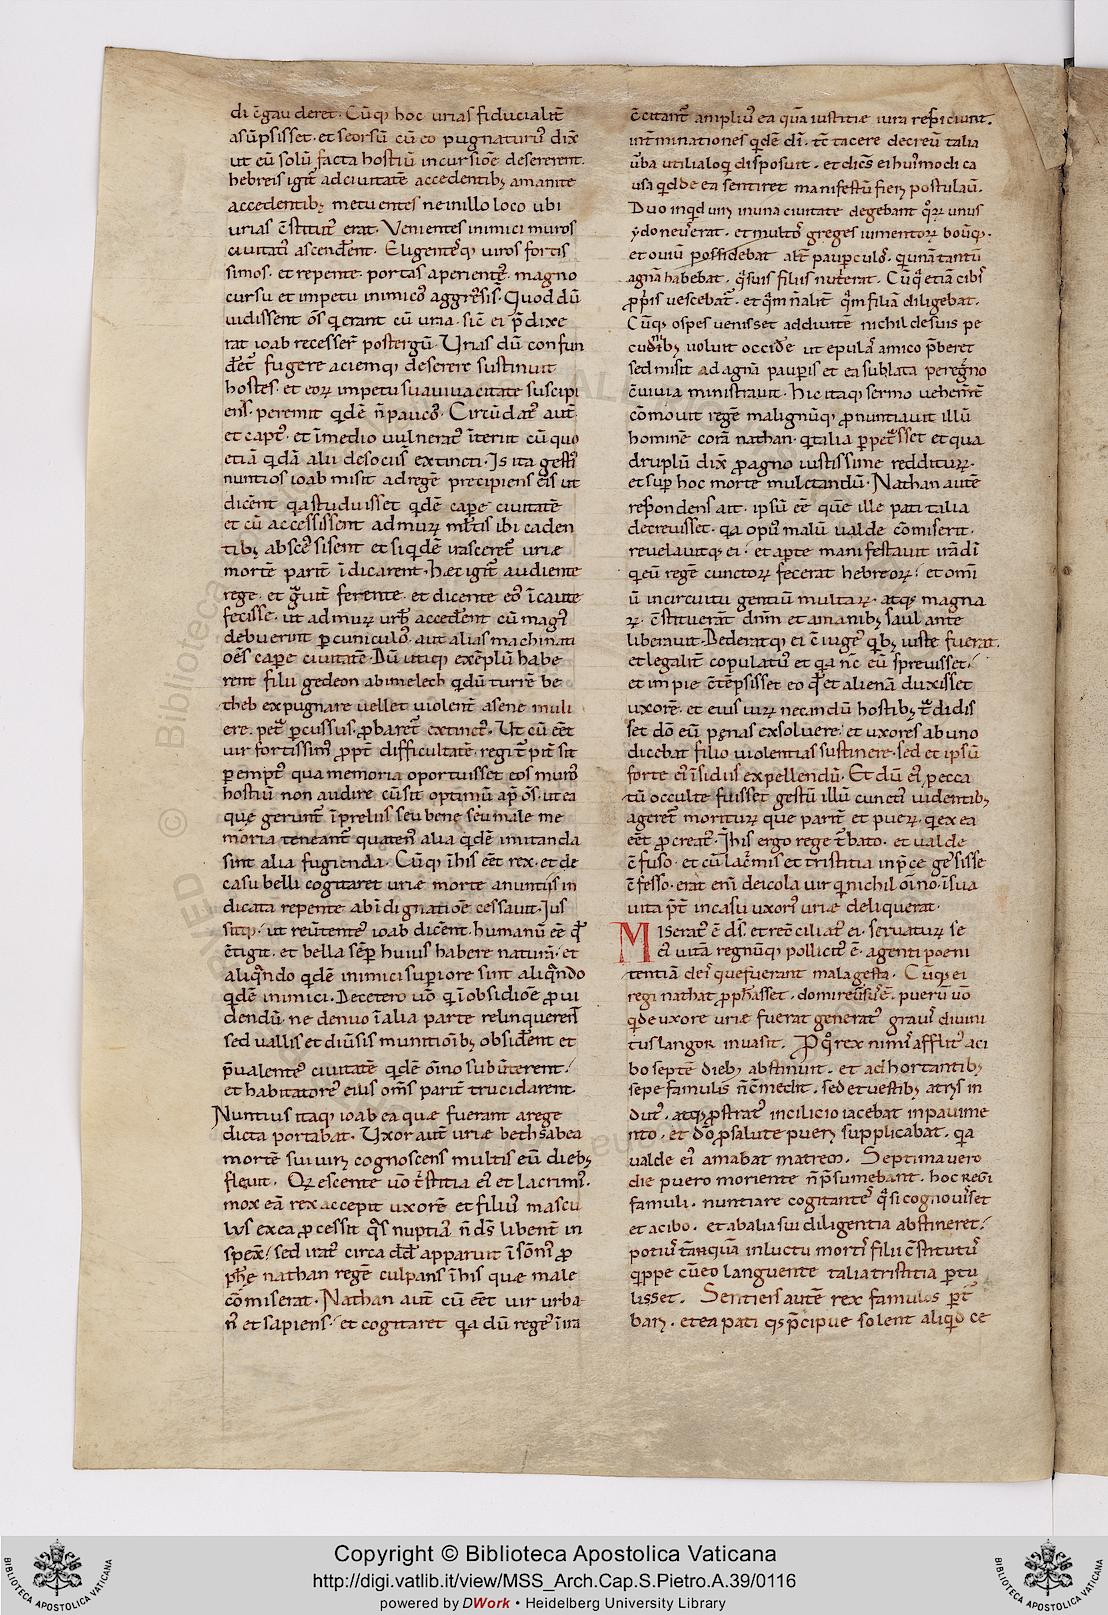 di c̄gauderet. Cūq; hoc urias fiducialit̄
asūpsisset. et seorsū cū eo pugnaturꝰ dix̄
ut eū solū facta hostiū incursiōe desererent.
hebreis igit̄ ad ciuitatē accedentib; amanite
accedentib; metuentes ne in illo loco ubi
urias c̄stitutꝰ erat. Venientes inimici muros
ciuitatꝭ ascendent. Eligentesq; uiros fortis
simos. et repente portas aperientes. magno
cursu et impetu inimicos aggressi s̄. Quod dū
uidissent ōs q̇ erant cū uria. sic̄ ei p̄dixe
rat ioab recesserˉ postergū. Urias dū confun
deret̄ fugere aciemq; deserere sustinuit
hostes. et eoꝝ impetu sua uiuacitate suscipi
ens. peremit q̇dē n̄ paucos. Circūdatꝰ aut̄
et captꝰ. et ī medio uulneratꝰ īteriit cū quo
etiā q̇dā alii de sociis extincti. Is ita gestis
nuntios ioab misit ad regē precipiens eis ut
dicent̄ qa studuisset q̇dē capere ciuitatē
et cū accessissent ad muꝝ multis ibi caden
tib; abscesisent et si q̇dē irasceret̄ uriæ
mortē parit̄ īdicarent. Hæc igit̄ audiente
rege. et grauit̄ ferente. et dicente eos īcaute
fecisse. ut ad muꝝ urbis accedent̄ cū magis
debuerint ꝑ cuniculos. aut alias machinati
ōes capere ciuitatē. Dū utiq; exemplū habe
rent filii gedeon abimelech q̇ dū turrē be
theb expugnare uellet uiolent̄ a sene muli
ere. petra ꝑcussus. ꝓbaret̄ extinctꝰ. Ut cū eēt
uir fortissimꝰ ꝓpt̄ difficultatē
ꝑemptꝰ qua memoria oportuisset eos muros
hostiū non audire cū sit optimū ap̄ ōs. ut ea
quę gerunt̄ ī preliis seu bene seu male me
moria teneant̄ quatenꝰ alia q̇dē imitanda
sint alia fugienda. Cūq; ī his eēt rex. et de
casu belli cogitaret uriæ morte a nuntiis in
dicata repente ab īdignatiōe cessauit. Ius
sitq;. ut reūtentes ioab dicent̄ humanū eē qđ
c̄tigit. et bella sēp huius habere naturā. et
aliqn̄do q̇dē inimici superiore sint aliqn̄do
q̇dē inimici. De cetero uō q̇ ī obsidiōe ꝓui
dendū. ne denuo ī alia parte relinquerent̄
sed uallis et diūsis munitiōib; obsident et
p̄ualentes ciuitatē q̇dē ōino subūterent.
et habitatores eius om̄s parit̄ trucidarent.
Nuntius itaq; ioab ea quæ fuerant a rege
dicta portabat. Uxor aut̄ uriæ bethsabea
mortē sui uiri cognoscens multis eū dieb;
fleuit. Qꝝ escente uō tristitia eiꝰ et lacrimis.
mox eā rex accepit uxorē et filius mascu
lus ex ea ꝓcessit q̇s nuptias n̄ ds̄ libent̄ in
spexit. sed iratꝰ circa dd̄ apparuit ī sōnis ꝓ
phē nathan regē culpans ī his quæ male
cōmiserat. Nathan aut̄ cū eēt uir urba
nꝰ et sapiens. et cogitaret qa dū reges ī ira
c̄citant̄ amplius ea quā iustitiæ iura respiciunt.
int̄minationes q̇dē di. tc̄ tacere decreū talia
ūba utilia loqui disposuit. et dicēs ei huimodi ca
usa quid de ea sentiret manifestū fieri postulau.
Duo inquid uiri in una ciuitate degebant quoꝝ unus
ydoneꝰ erat. et multos greges iumentoꝝ boūq;.
et ouiū possidebat alt̄ pauꝑculꝰ. qui unā tantū
agnā habebat. q̄ suis filiis nutrierat. Cūq; etiā cibis
ꝓpriis uescebat̄. et quem n̄ alit̄ quam filiā diligebat.
Cūq; ospes uenisset ad diuitē nichil de suis pe
cudib; uoluit occidere ut epulas amico p̄beret
sed misit ad agnā pauꝑis et ea sublata peregrino
c̄uiuia ministrauit. hic itaq; sermo uehement̄
cōmouit regē malignūq; ꝓnuntiauit illū
hominē corā nathan. qui talia ꝑpetrasset et qua
druplū dixit ꝓ agno iustissime redditurꝝ.
et super hoc morte mulctandū. Nathan autē
respondens ait. ipsū eē quē ille pati talia
decreuisset. qa opus malū ualde cōmiserit.
reuelauitq; ei. et aperte manifestauit irā di
q̇ eū regē cunctoꝝ fecerat hebreoꝝ. et omī
ū in circuitu gentiū multaꝝ. atq; magna
ꝝ. c̄stituerat dnm̄ et a manib; saul ante
liberauit. Dederatq; ei c̄iuges q̇b; iuste fuerat.
et legalit̄ copulatus et qa nc̄ eū spreuisset.
et impie c̄tēpsisset eo qđ et alienā duxisset
uxorē. et eius uiꝝ necandū hostib; tradidis
set dō eū penas exsoluere. et uxores ab uno
dicebat filio uiolentias sustinere. sed et ipsū
forte eiꝰ īsidiis expellendū. Et dū eiꝰ pecca
tū occulte fuisset gestū illū cunctis uidentib;
ageret̄ morituꝝ que parit̄ et pueꝝ. q̇ ex ea
eēt ꝓcreatꝰ. In his ergo rege t̄bato. et ualde
c̄fuso. et cū lacrimis et tristitia in p̄ce gessisse
c̄fesso. erat eni deicola uir qui nichil ōino ī sua
uita p̄t̄ in casu uxoris uriæ deliquerat.
Miseratꝰ ē ds̄. et rec̄ciliatꝰ ei. seruaturꝰ se
eiꝰ uitā regnūq; pollicitꝰ ē. agenti poeni
tentiā de is que fuerant mala gesta. Cūq; ei
regi nathat ꝓphasset. domi reūsus ē. puerū uō
q̇ de uxore uriæ fuerat generatꝰ grauis diuini
tus langor inuasit. P̄ quo rex nimis afflictꝰ a ci
bo septē dieb; abstinuit. et ad hortantib;
sepe famulis n̄ c̄medit. sed et uestib; atris in
dutꝰ. atq; ꝓstratꝰ in cilicio iacebat in pauime
nto. et dō ꝓ salute pueri supplicabat. qa
ualde eiꝰ amabat matrem. Septima uero
die puero moriente n̄ p̄sumebant. hoc regi
famuli. nuntiare cogitantes q̄ si cognouisset
et a cibo. et ab alia sui diligentia abstineret.
potius tanquā in luctu mortis filii c̄stitutus
q̇ppe cū eo languente talia tristitia ꝑtu
lisset. Sentiens autē rex famulos p̄t̄
bari. et ea pati qs p̄cipue solent aliq̇d ce
Copyright © Biblioteca Apostolica Vaticana
http://digi.vatlib.it/view/MSS_Arch.Cap.S.Pietro.A.39/0116
powered by DWork • Heidelberg University Library
BIBLIOTECA APOSTOLICA VATICANA
BIBLIOTECA APOSTOLICA VATICANA